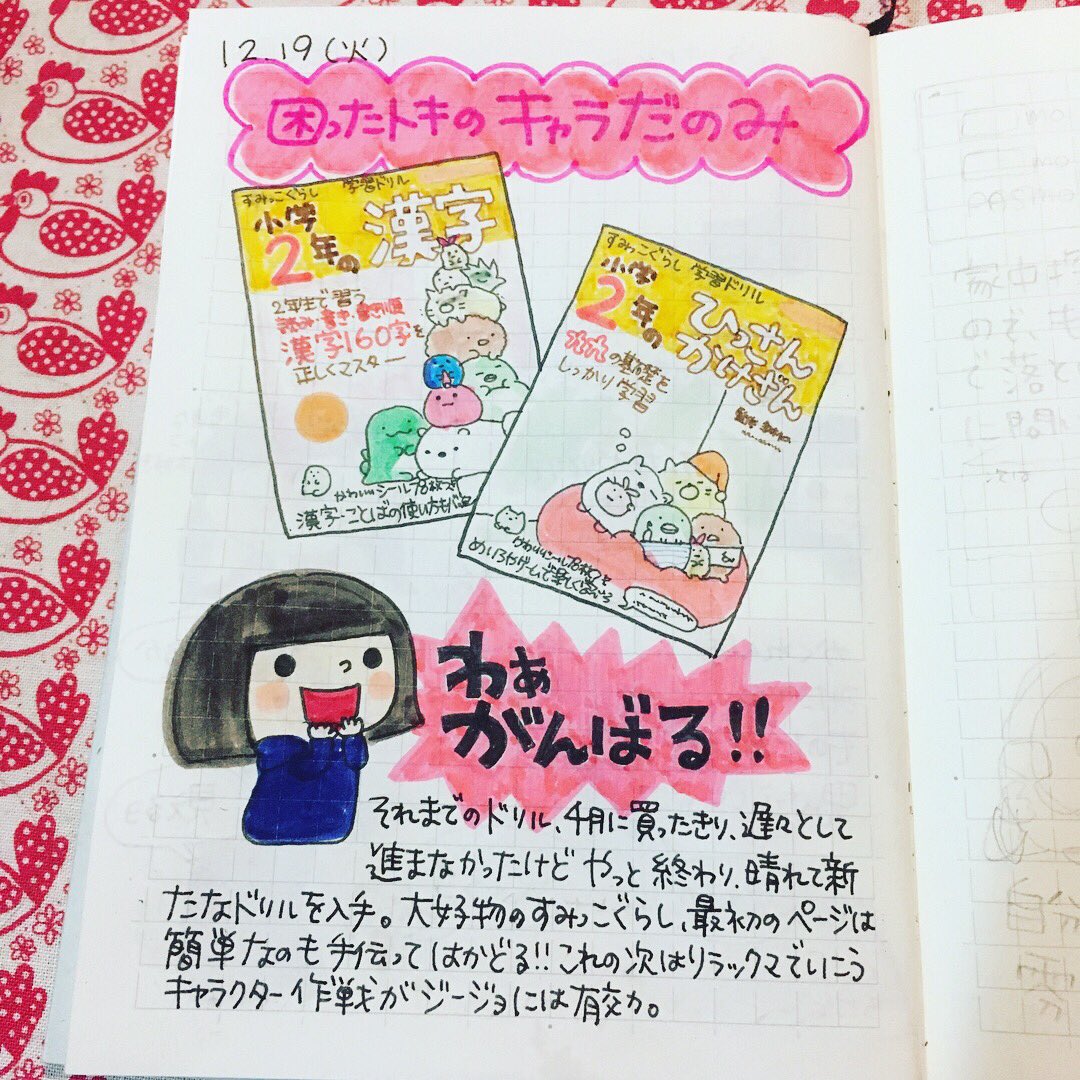 12.19(火)
困ったトキのキャラだのみ
すみっこぐらし 学習ドリル
小学
2年の
漢字
2年生で習う
読み・書き・書き順
漢字160字を
正しくマスター
かわいいシール78枚つき
漢字・ことばの使い方も
すみっこぐらし 学習ドリル
小学
2年の
ひっさん
かけざん
九九の基礎を
しっかり学習
かわいいシール78枚つき
めいろやゲームで楽しく
わぁ
がんばる!!
それまでのドリル、4月に買ったきり、遅々として
進まなかったけど やっと終わり、晴れて新
たなドリルを入手。大好物のすみっこぐらし、最初のページは
簡単なのも手伝ってはかどる!!これの次はリラックマでいこう
キャラクター作戦がジージョには有効。